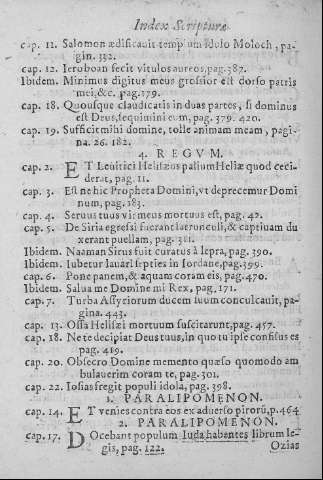 Index Scripturæ
cap. 11. Salomon ædificauit templum Idolo Moloch, pa-
gin. 392.
cap. 12. Ieroboan fecit vitulos aureos, pag. 387.
Ibidem. Minimus digitus meus grossior est dorso patris
mei, &c. pag. 179.
cap. 18. Quousque claudicatis in duas partes, si dominus
est Deus, sequimini eum, pag. 379. 420.
cap. 19. Sufficit mihi domine, tolle animam meam, pagi-
na. 26. 182.
4. REGVM.
cap. 2. ET Leuitici Helisæus pallium Heliæ quod ceci-
derat, pag. 11.
cap. 3. Est ne hic Propheta Domini, vt deprecemur Domi
num, pag. 183.
cap. 4. Seruus tuus vir meus mortuus est, pag. 42.
cap. 5. De Siria egressi fuerant latrunculi, & captiuam du
xerant puellam, pag. 311.
Ibidem. Naaman Sirus fuit curatus à lepra, pag. 390.
Ibidem. Iubetur lauari septies in Iordane, pag. 399.
cap. 6. Pone panem, & aquam coram eis, pag. 470.
Ibidem. Salua me Domine mi Rex, pag. 171.
cap. 7. Turba Assyriorum ducem suum conculcauit, pa-
gina. 443.
cap. 13. Ossa Helisæi mortuum suscitarunt, pag. 457.
cap. 18. Ne te decipiat Deus tuus, in quo tu ipse confisus es
pag. 419.
cap. 20. Obsecro Domine memento quæso quomodo am
bulauerim coram te, pag. 301.
cap. 22. Iosias fregit populi idola, pag. 398.
1. PARALIPOMENON.
cap. 14. ET venies contra eos ex aduerso pirorū, p. 464
2. PARALIPOMENON.
cap. 17. DOcebant populum Iuda habantes librum le-
gis, pag. 122. Ozias